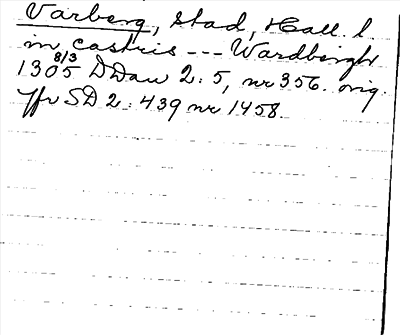 Varberg, stad, Hall. l.
in castris --- Wardbergh
1305 8/3 DDan 2:5, nr 356. orig.
Jfr SD 2:439 nr 1458.